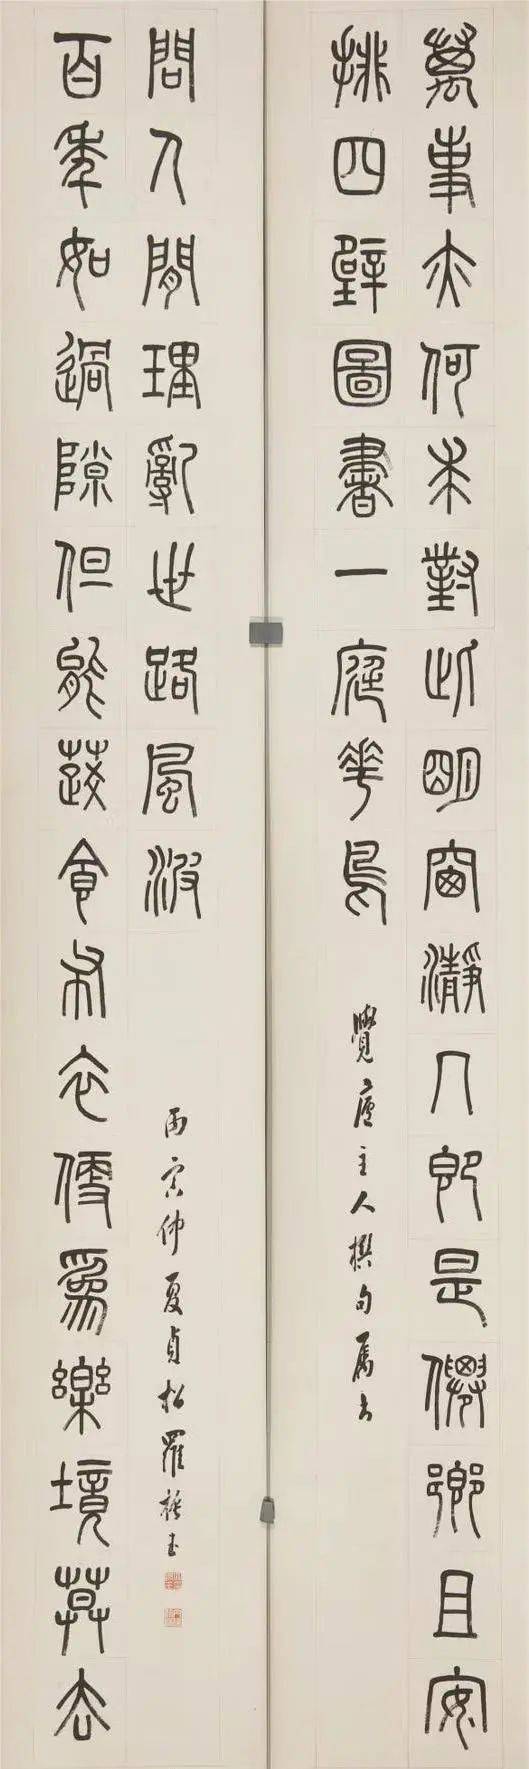 萬事亦何求對此明窗瀞几即是僊鄉且安
排四壁圖書一庭花鳥
覺廬主人撰句屬書
百年如過隙但能蔬食布衣便為樂境莫去
問人間理亂世路風波
丙寅仲夏貞松羅振玉